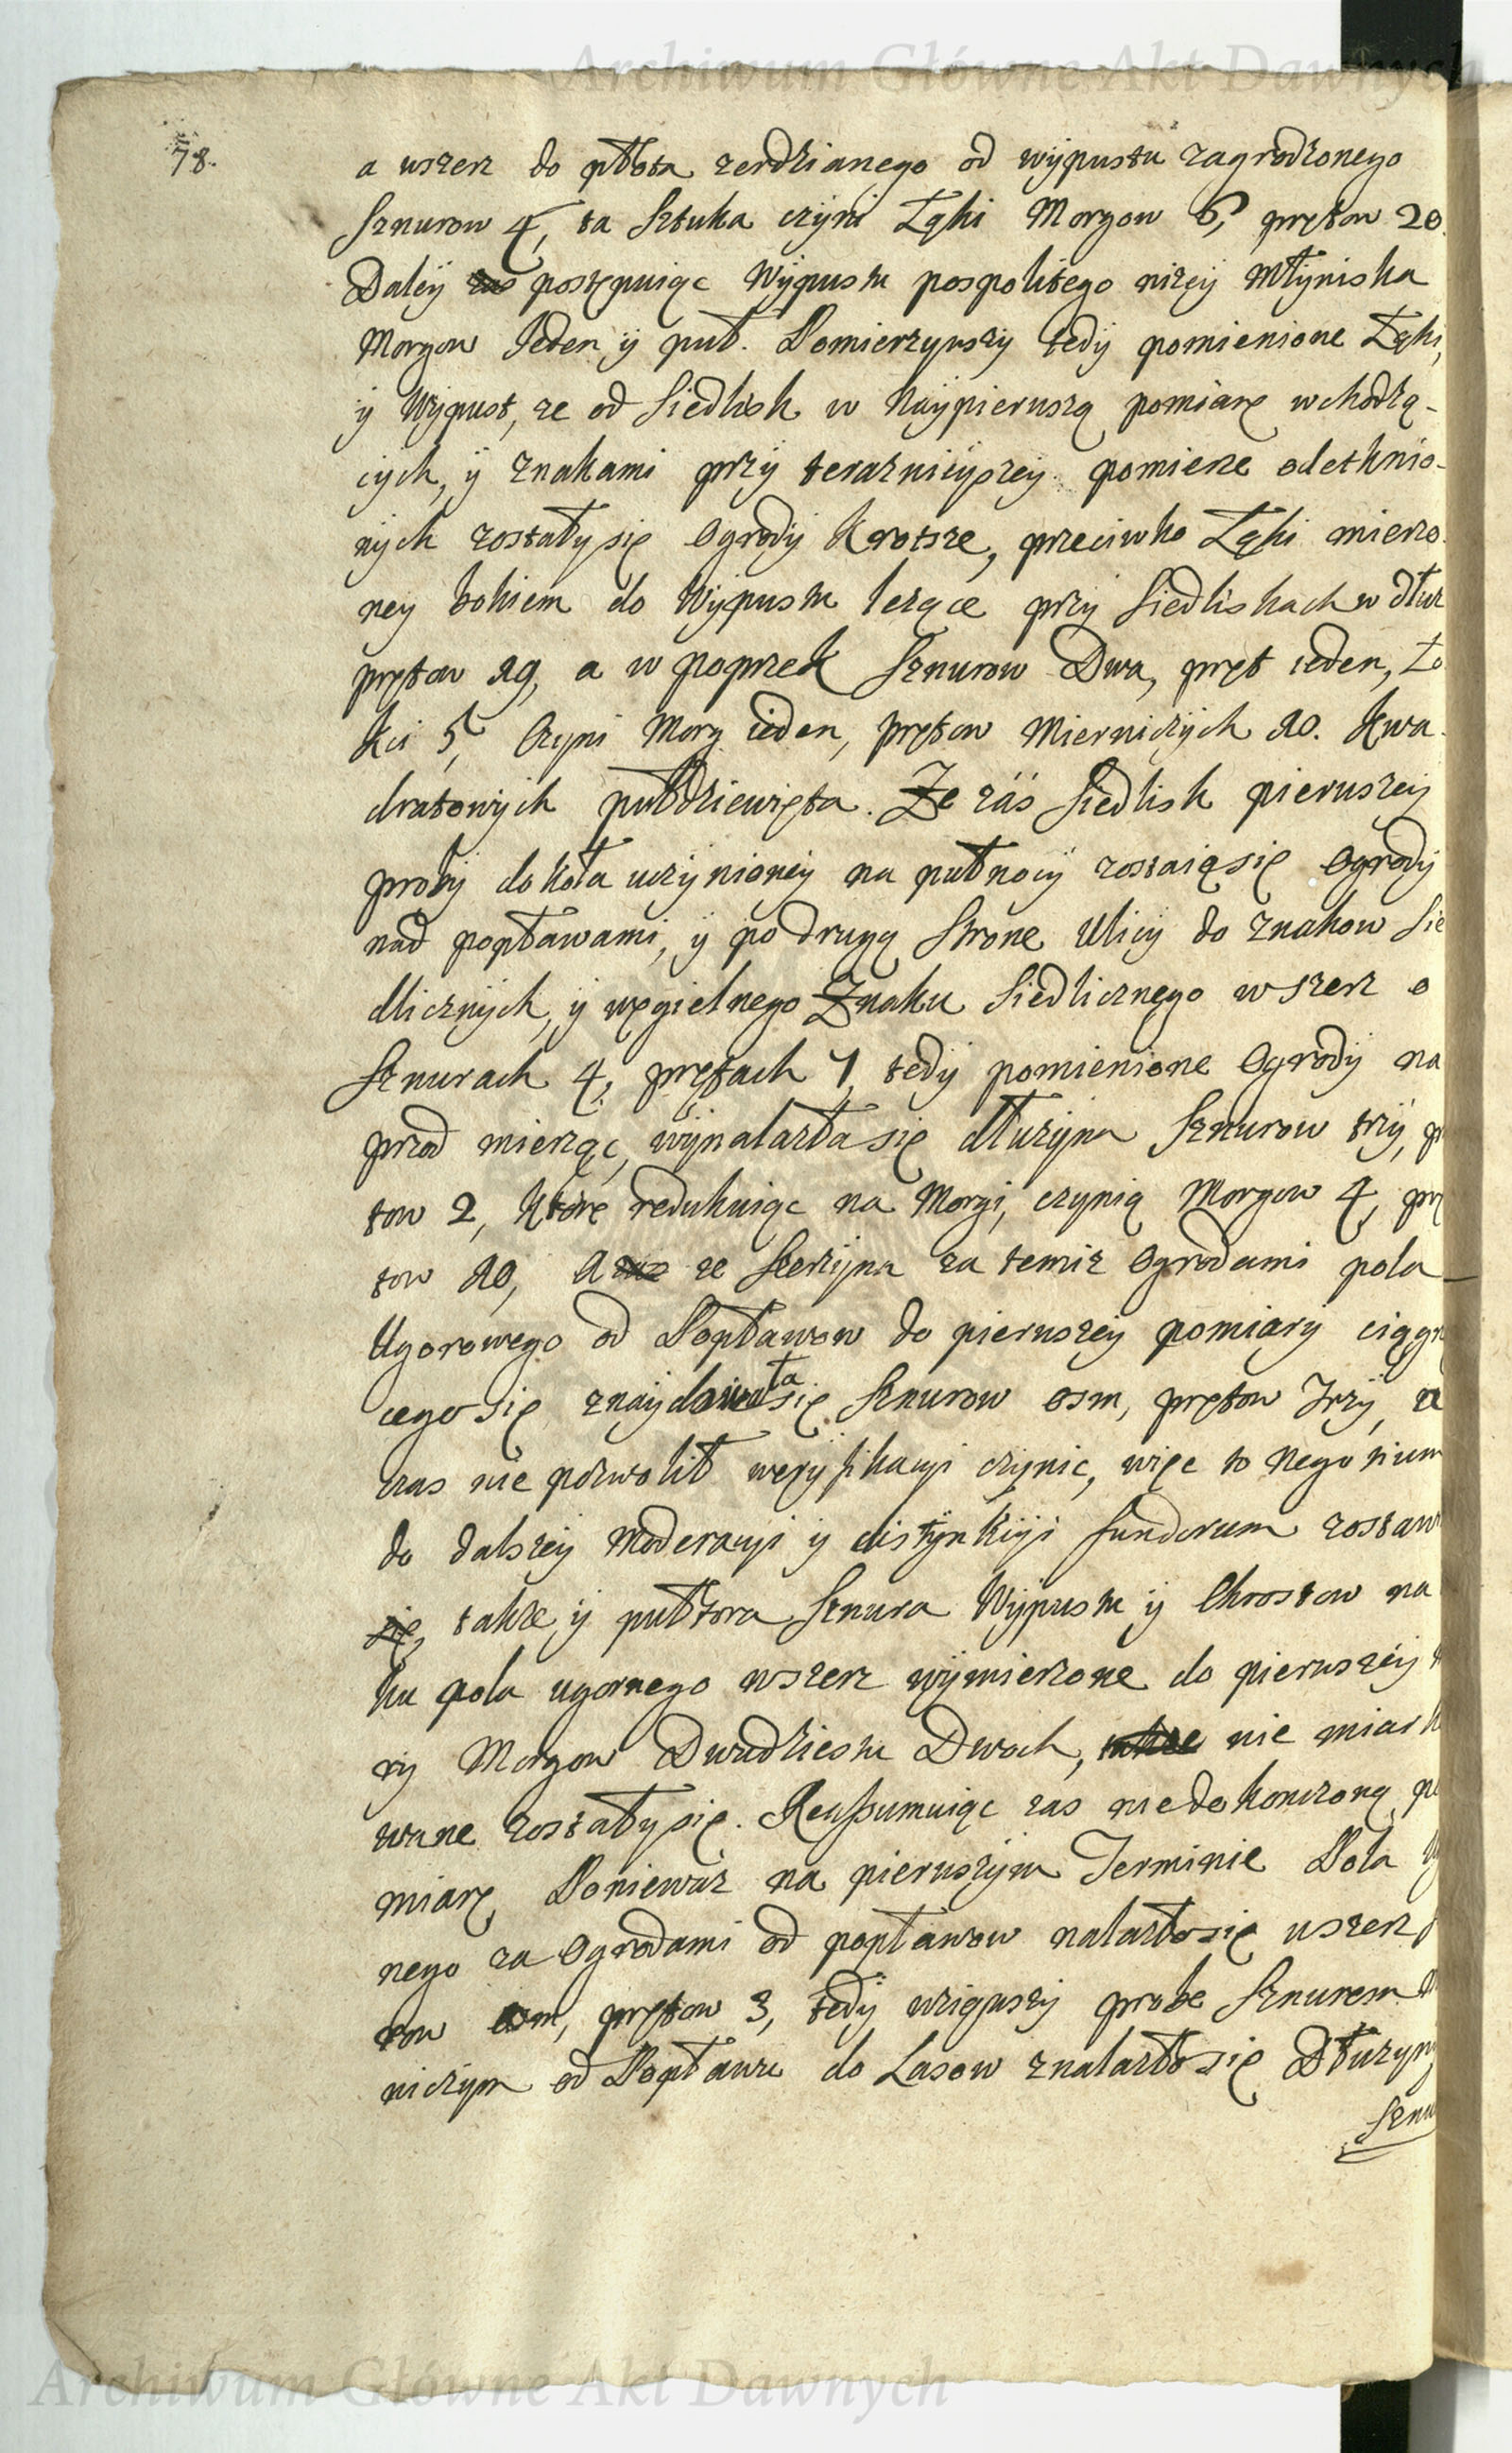 Archiwum Główne Akt Dawnych
78.
a wszerz do płota zerdzianego od wypustu zagrodzonego
Sznurow 4, ta Sztuka czyni Łąki Morgow 6, prętow 20.
Daley zas postępuiąc Wypustu pospolitego niżey Młyniska
Morgow Jeden y puł. Pomierzywszy tedy pomienione Łąki,
y Wypust, ze od Siedlisk w Naypierwszą pomiarę wchodzą-
cych, y znakami przy teraznieyszey pomierze odetknio-
nych zostały się Ogrody Krotsze, przeciwko Łąki mierzo-
ney bokiem do Wypustu lezące przy Siedliskach w dłuz
prętow 19, a w poprzek Sznurow Dwa, pręt ieden, Ło
kci 5, Czyni Morg ieden, prętow Mierniczych 10. Kwa-
dratowych pułdziewięta. Ze zaś Siedlisk pierwszey
proby do koła uczynioney na pułnocy zostaią się Ogrody
nad popławami, y po drugą Strone Ulicy do Znakow Sie
dlicznych, y węgielnego Znaku Siedlicznego wszerz o
Sznurach 4, prętach 7, tedy pomienione Ogrody na
przod mierząc, wynalazła się dłużyna Sznurow trzy, pr
tow 2, Ktore redukuiąc na Morgi, czynią Morgow 4, prę
tow 10, A zas ze Szerzyna za temiz Ogrodami pola
Ugorowego od Popławow do pierwszey pomiary ciągną
cego się znaydowała się Sznurow osm, prętow Trzy, a
czas nie pozwolił weryfikacyi czynic, więc to Negotium
do dalszey Moderacyi y distynkcyi fundorum zostaw
się, takze y pułtora Sznura Wypustu y Chrostow na
ku pola ugornego wszerz wymierzone do pierwszey
ry Morgow Dwudziestu Dwoch, takze nie miarko
wane zostały się. Reassumuiąc zas niedokonczoną po
miarę Poniewaz na pierwszym Terminie Pola
nego za Ogrodami od popławow nalazło się wszerz
row osm, prętow 3, tedy wziąwszy probe Sznurem
niczym od Popławu do Lasow znalazło się Dłużyny
Sznu
Archiwum Główne Akt Dawnych